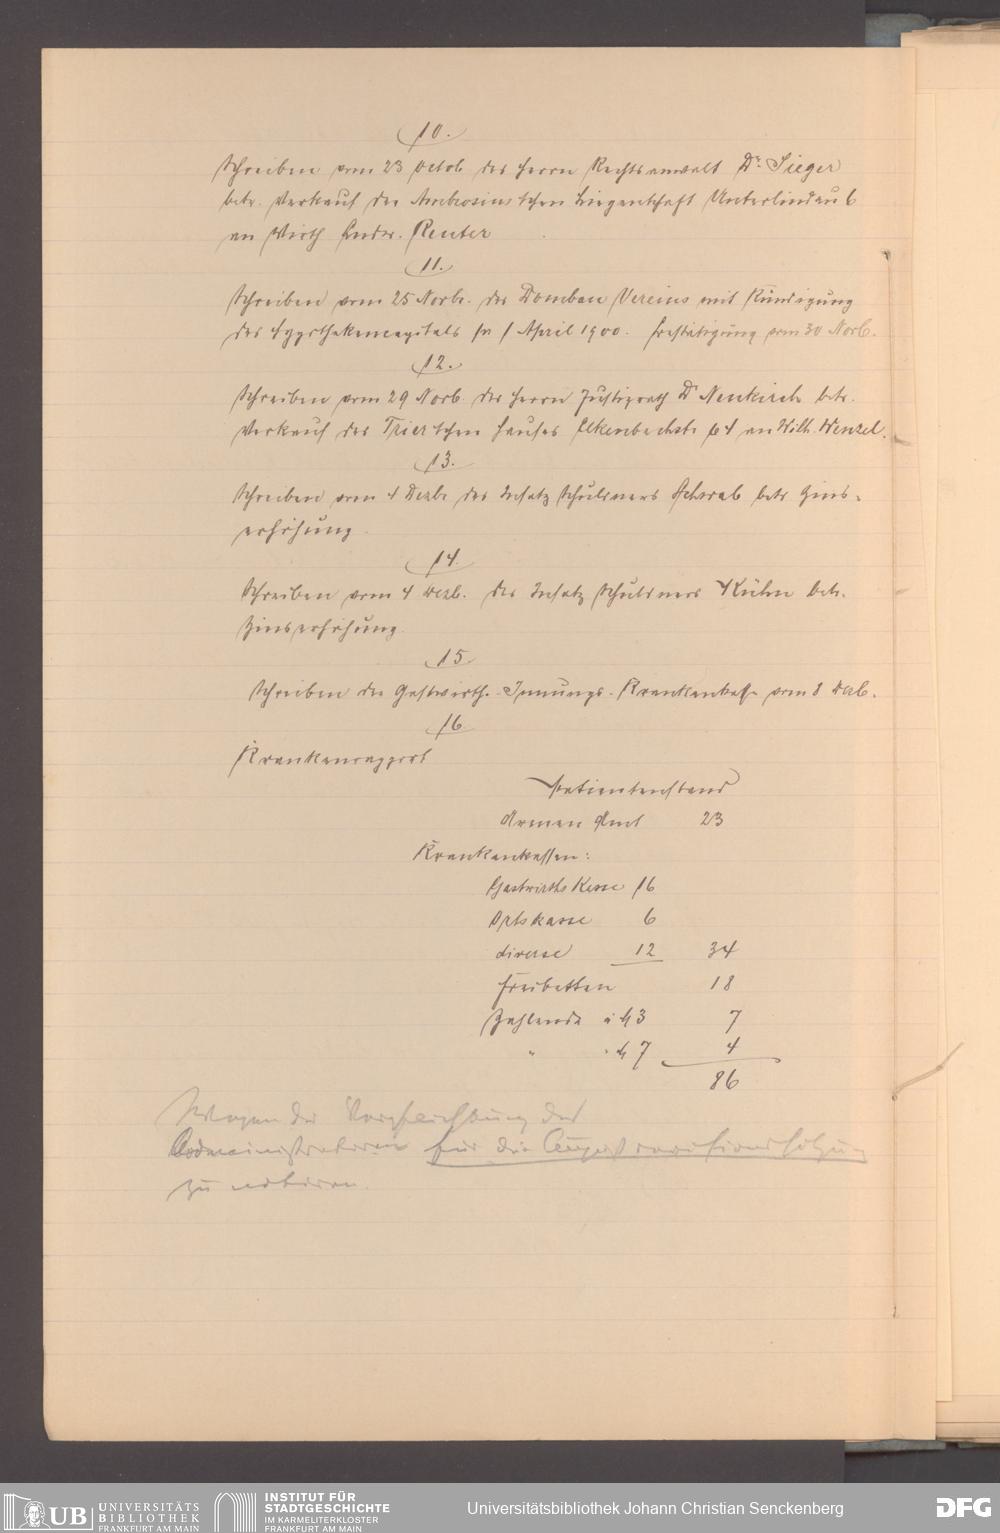 10.
Schreiben vom 23 Octob. des Herrn Rechtsanwalt Dr. Sieger
betr. Verkauf der Ambrosius'schen Liegenschaft Unterlindau 6
an Wirth Andr. Reuter
11.
Schreiben vom 25 Novbr. des Dombau Vereins mit Kündigung
des Hypothekencapitals pr 1 April 1900. Bestätigung vom 30 Novb.
12.
Schreiben vom 29 Novb. des Herrn Justizrath Dr Neukirch betr.
Verkauf des Trier'schen Hauses Elkenbachstr 64 an Wilh. Wenzel.
13.
Schreiben vom 4 Dezbr des Insatz Schuldners Schwab betr Zins-
erhöhung.
14.
Schreiben vom 4 Dezb. des Insatz Schuldners Kühn betr.
Zinserhöhung.
15
Schreiben der Gastwirth-Innungs-Krankenkasse vom 8 Dezb.
16
Krankenrapport
Patientenstand
Armen Amt 23
Krankenkassen:
Gastwirths Kasse 16
Ortskasse 6
diverse 12 34
Freibetten 18
Zahlende à M 3 7
" " M 7 4
86
Wegen der Verpflichtung des
Administrators für die
zu notiren.
UB UNIVERSITÄTS
BIBLIOTHEK
FRANKFURT AM MAIN
INSTITUT FÜR
STADTGESCHICHTE
IM KARMELITERKLOSTER
FRANKFURT AM MAIN
Universitätsbibliothek Johann Christian Senckenberg
DFG